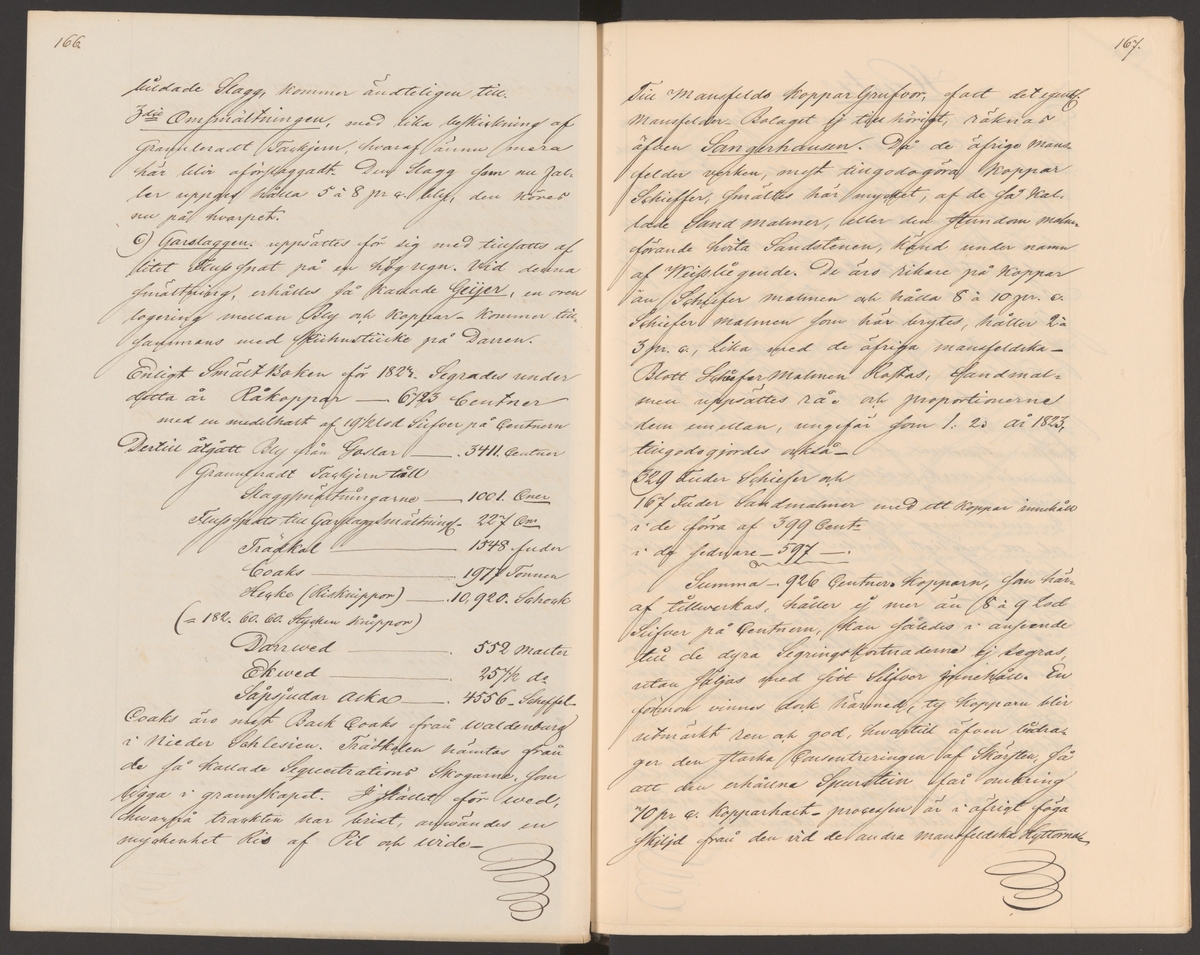 166.
bildade Slagg, kommer ändteligen till.
3die Omsmältningen, med lika beskickning af
Granuleradt Tackjern, hvaraf ännu mera
här blir oförslaggadt. Den Slagg som nu fal-
ler uppges hålla 5 à 8 pr c. bly, den köres
nu på hvarpet.
c) Garslaggen. uppsättes för sig med tillsatts af
litet Flusspat på en hög ugn. Vid denna
smältning, erhålles så kallade Geijer, en oren
legering mellan Bly och Koppar - kommer till-
sammans med på Darren.
Enligt Smält Boken för Segrades under
detta år Råkoppar — 6723 Centner
med en medelhalt af 19½ lod Silfver på Centnern
Dertill åtgått Bly från Goslar — 3411 Centner
Granuleradt Tackjern till
Slaggsmältningarne — 1001. Cner
Flusspats till Garslaggsmältning - 227 Cnr
Trädkol — 1548 fuder
Coaks — 1977 Tonnen
(Risknippor) — 10,920. Schock
(= 182. 60. 60. Stycken Knippor)
Darrwed — 552 Malter
Ekwed — 25½ do
Såpsjudar Aska — 4556 - Scheffel-
Coaks äro mest Back Coaks från Waldenburg
i Nieder Schlesien. Trädkolen hämtas från
de så kallade Sequestrations Skogarne, som
ligga i grannskapet. I stället för wed,
hwarpå trakten har brist, användes en
myckenhet Ris af Pil och wide-
167.
Till Mansfelds Koppar Grufvor, fast det egentl.
Mansfelder- Bolaget ej tillhörigt, räknas
äfven Sangerhausen. Då de äfriga Mans-
felder verken, mest tillgodogöra Koppar
Schieffer, smältes här mycket, af de så kal-
lade Sand malmer, eller den stundom malm-
förande hvita Sandstenen, känd under namn
af Weissliegende. De äro rikare på Koppar
än Schiefer malmen och hålla 8 à 10 pr. c.
Schiefer malmen som här brytes, håller 2 à
3 pr. c., Lika med de öfriga mansfeldska -
Blott Schiefer Malmen Rostas, Sandmal-
men uppsättes rå, och proportionerne
dem emellan, ungefär som 1: 2. År 1823,
tillgodogjordes också -
329 Fuder Schiefer och
167 Fuder Sandmalmer med ett Koppar innehåll
i de förra af 399 Cent:
i de sednare - 597 —.
Summa - 926 Centner Kopparn, som här-
af tillwerkas, håller ej mer än 8 à 9 Lod
Silfver på Centnern, kan således i anseende
till de dyra Segringskostnaderne ej segras,
utan säljas med sitt Silfver innehåll. En
förmon vinnes dock härmed, ty Kopparn blir
utmärkt ren och god, hwartill äfven bidra-
ger den starka Consentreringen af Skörsten, så
att den erhållne Spurstein får omkring
70 pr c. Kopparhalt - processen är i öfrigt föga
skiljd från den vid de andra mansfeldska Hyttorna